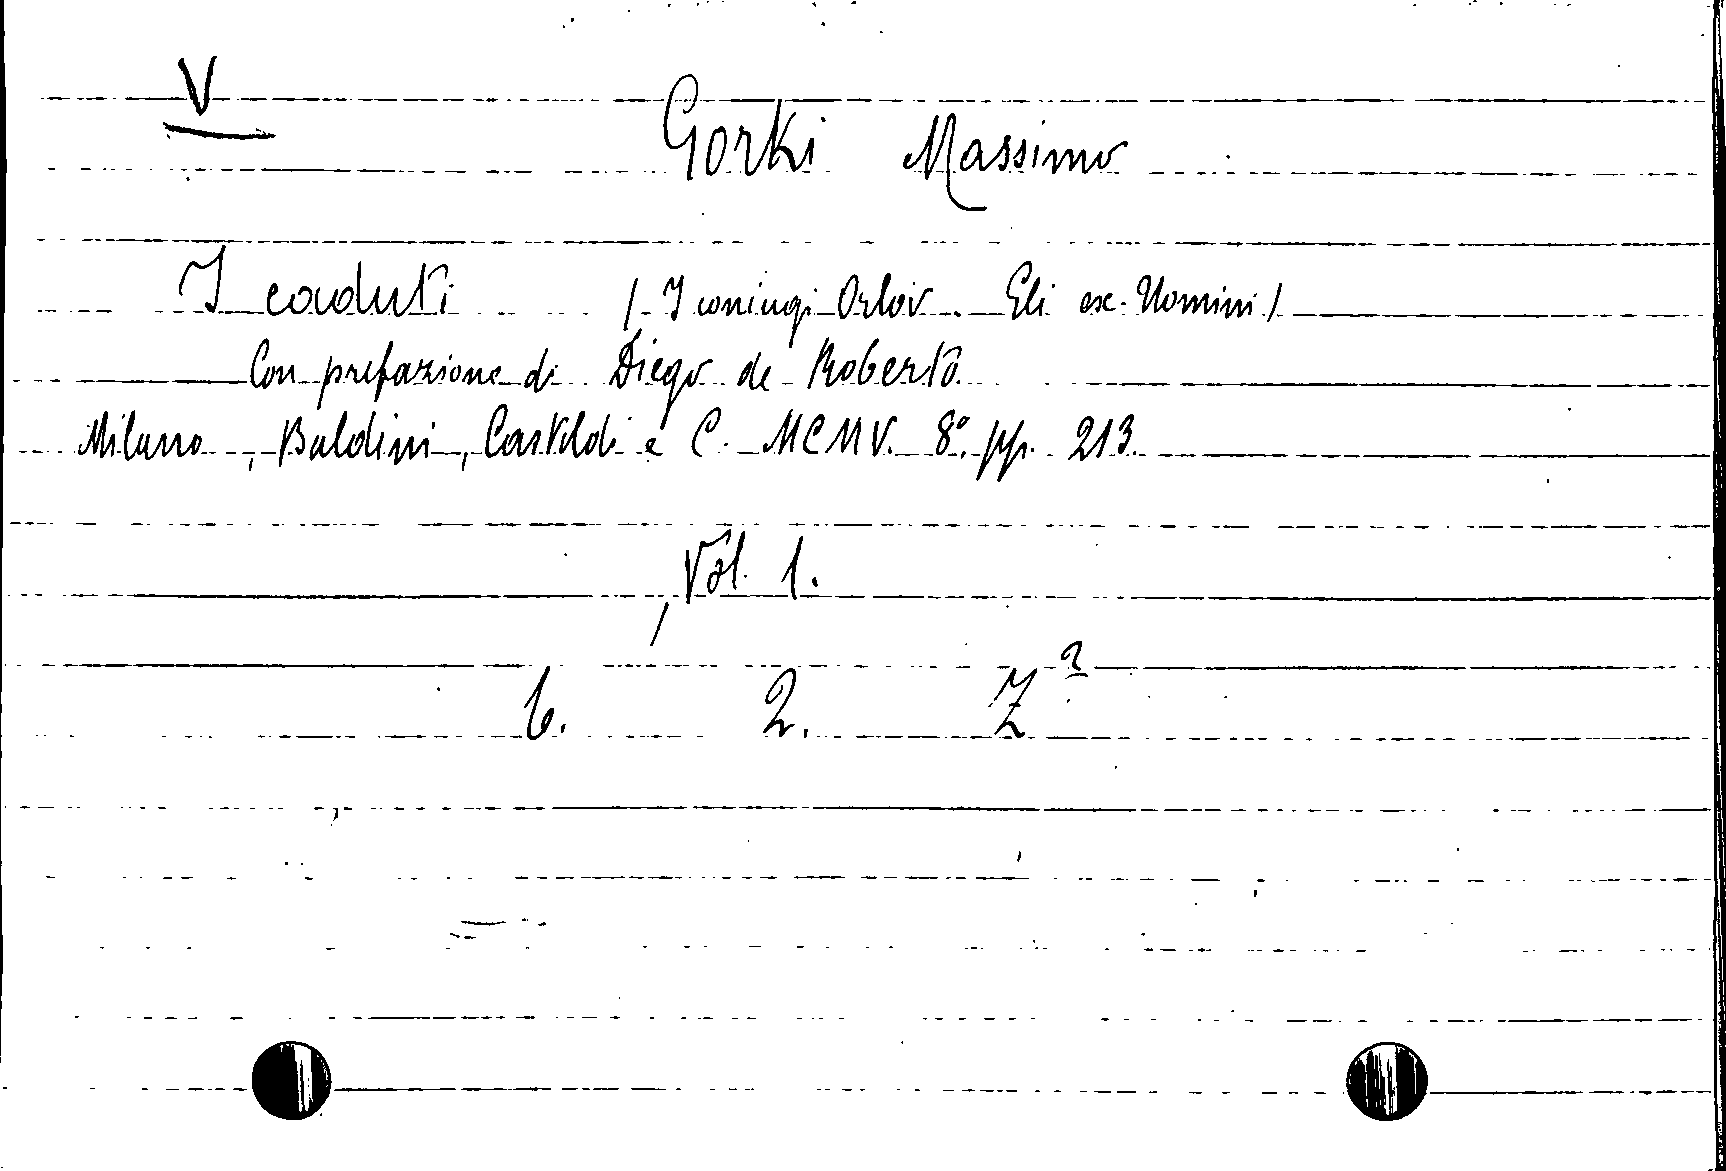 V
Gorki Massimo
I caduti / I coniugi Orlov. Gli ex-Uomini /
Con prefazione di Diego de Roberto
Milano, Baldini, Castoldi e C. MCMV. 8º. pp. 213.
Vol. 1.
6. 2. Z²